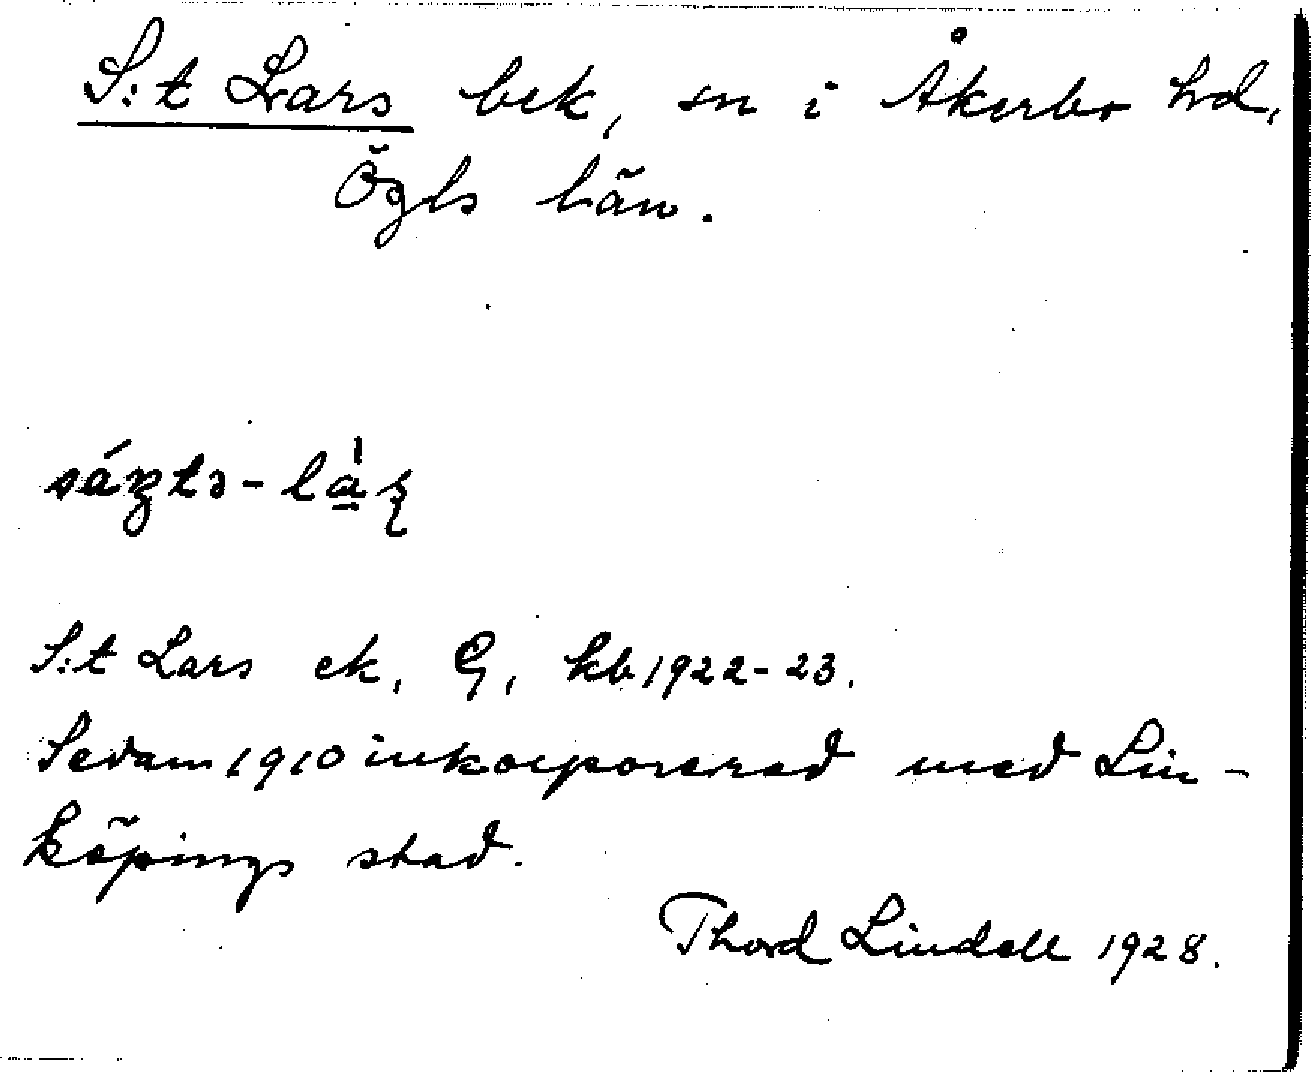 S:t Lars bek, sn i Åkerbo hd,
Ögls län.
S:t Lars ek, G, kb 1922-23.
Sedan 1910 inkorporerad med Lin-
köpings stad.
Thord Lindell 1928.